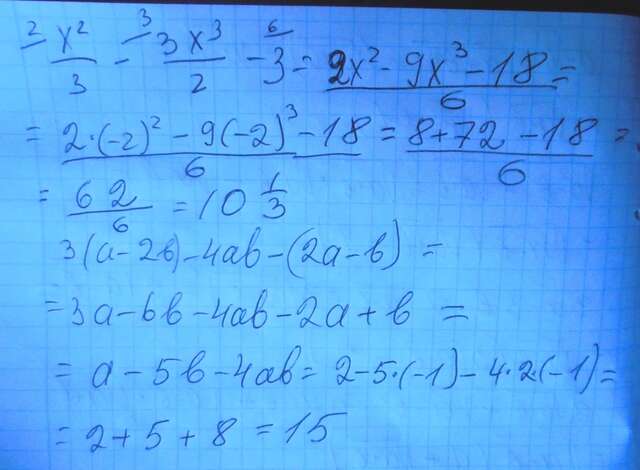 ²⁄ x²/3 - ³⁄ 3x³/2 - ⁶⁄ 3 = (2x² - 9x³ - 18)/6 =
= (2·(-2)² - 9(-2)³ - 18)/6 = (8 + 72 - 18)/6 =
= 62/6 = 10 1/3
3(a - 2b) - 4ab - (2a - b) =
= 3a - 6b - 4ab - 2a + b =
= a - 5b - 4ab = 2 - 5·(-1) - 4·2·(-1) =
= 2 + 5 + 8 = 15